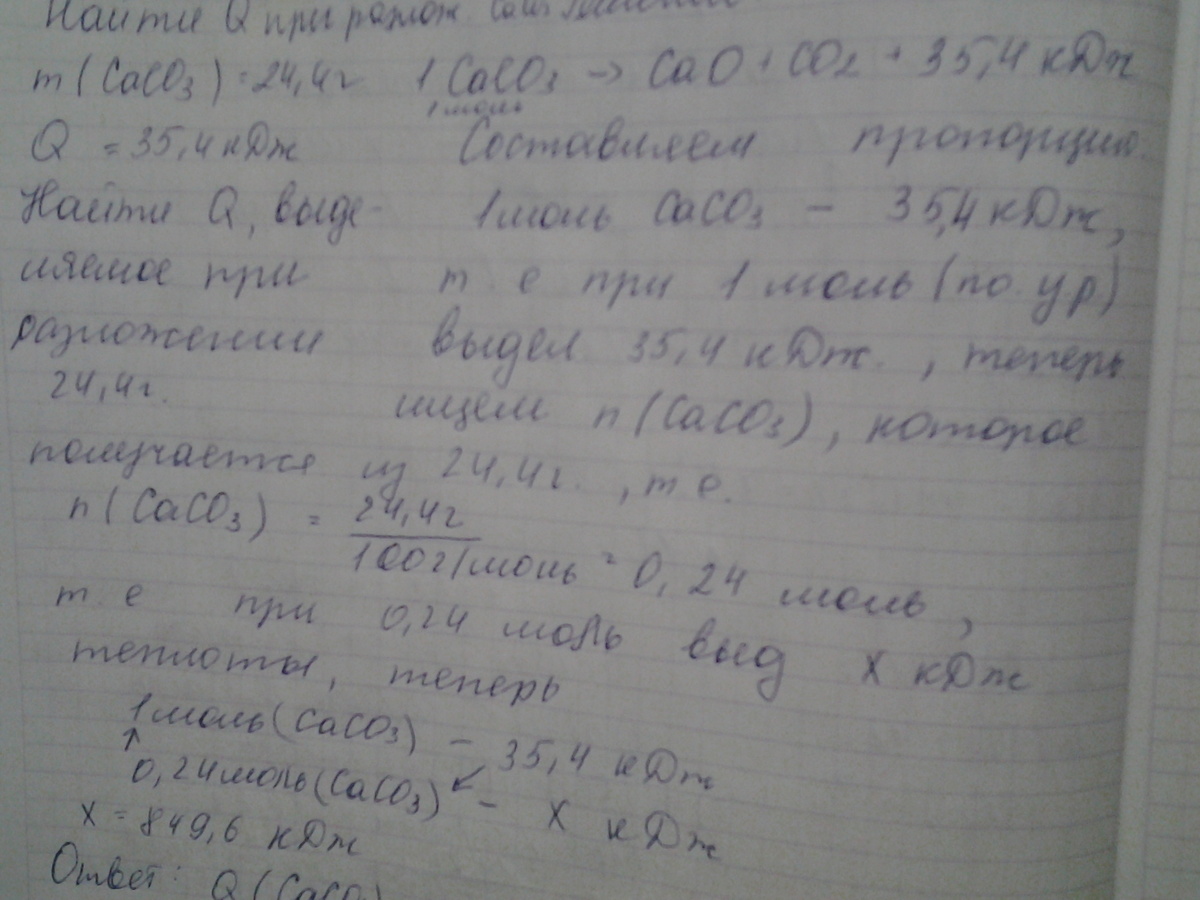 Найти Q при разлож.
m(CaCO3)=24,4г 1CaCO3 → CaO + CO2 + 35,4 кДж
1 моль
Q = 35,4 кДж Составляем пропорцию.
Найти Q, выде- 1 моль CaCO3 – 35,4 кДж,
ляемое при т. е при 1 моль (по. ур)
разложении выдел 35,4 кДж. , теперь
24,4г. ищем n(CaCO3), которое
получается из 24,4г. , т е.
n(CaCO3) = 24,4г
100г/моль = 0,24 моль,
т. е при 0,24 моль выд X кДж
теплоты, теперь
1 моль(CaCO3) – 35,4 кДж
0,24 моль(CaCO3) – X кДж
X = 849,6 кДж
Ответ: Q (CaCO3)